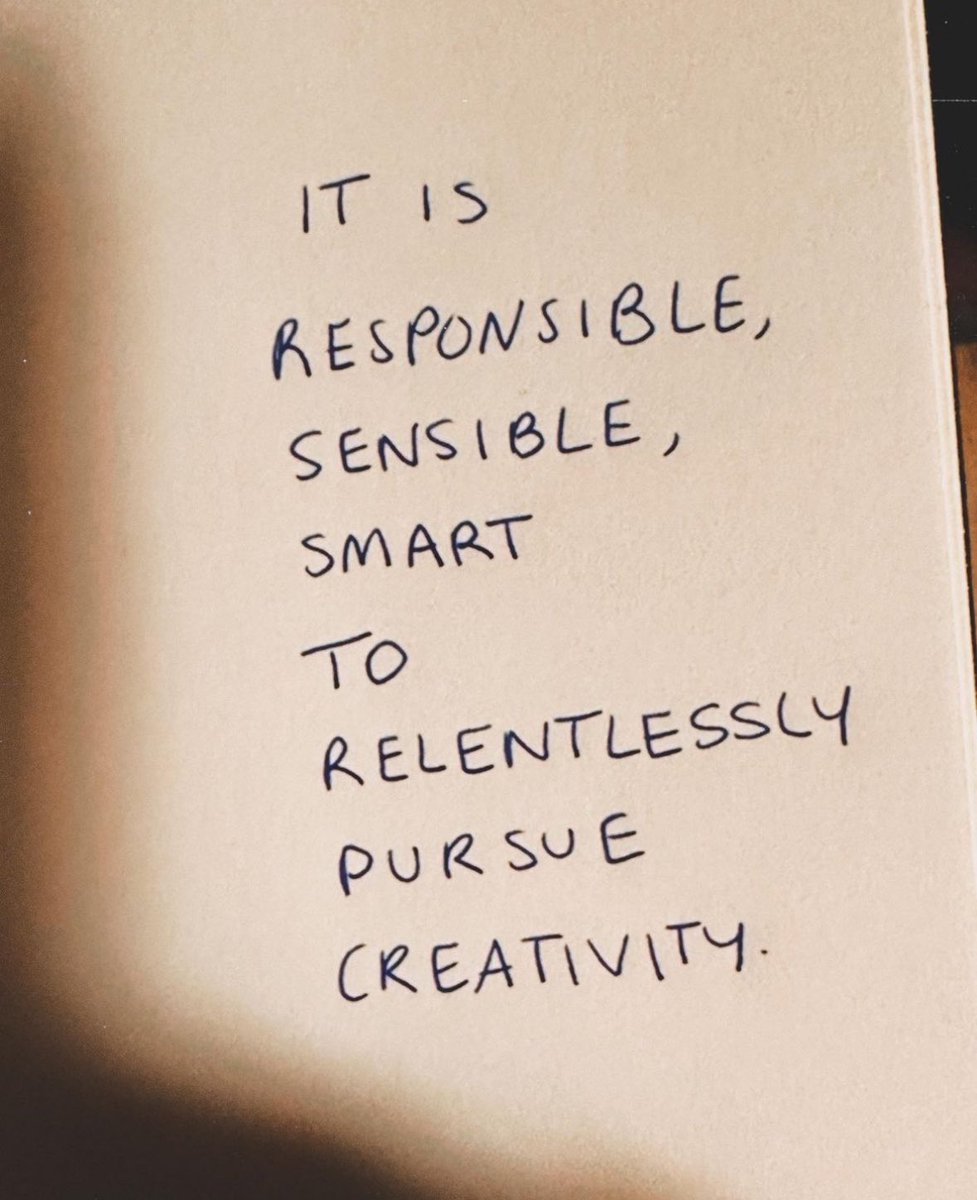 IT IS
RESPONSIBLE,
SENSIBLE,
SMART
TO
RELENTLESSLY
PURSUE
CREATIVITY.